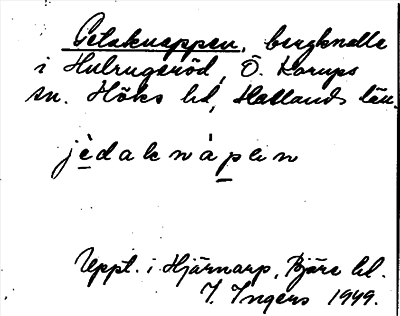 Getaknappen, bergknalle
i Hulrugeröd, Ö. Karups
sn. Höks hd, Hallands län.
jèdaknàpen
Uppt. i Hjärnarp, Bjäre hd.
I. Ingers 1949.